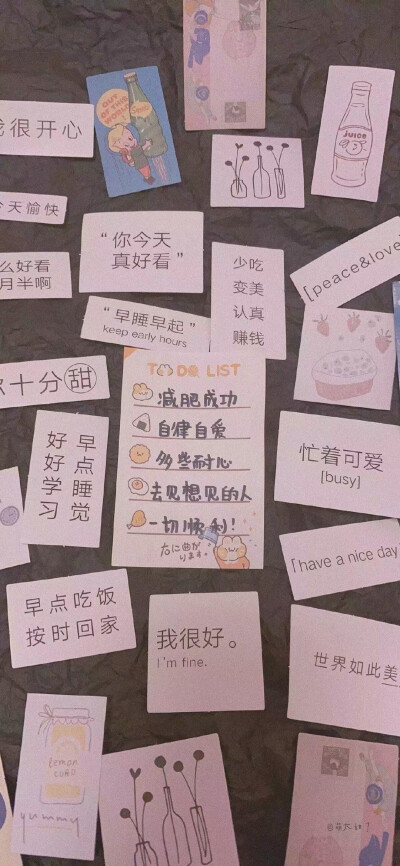 我很开心
OUT
OF THIS
WORLD
JUICE
今天愉快
么好看
月半啊
“你今天
真好看”
少吃
变美
认真
赚钱
[peace&love]
“早睡早起”
keep early hours
十分甜
TO DO LIST
减肥成功
自律自爱
多些耐心
去见想见的人
一切顺利！
右に曲が
ります。
早点睡觉
好好学习
忙着可爱
[busy]
[have a nice day
早点吃饭
按时回家
我很好。
I'm fine.
世界如此美
Lemon
yummy